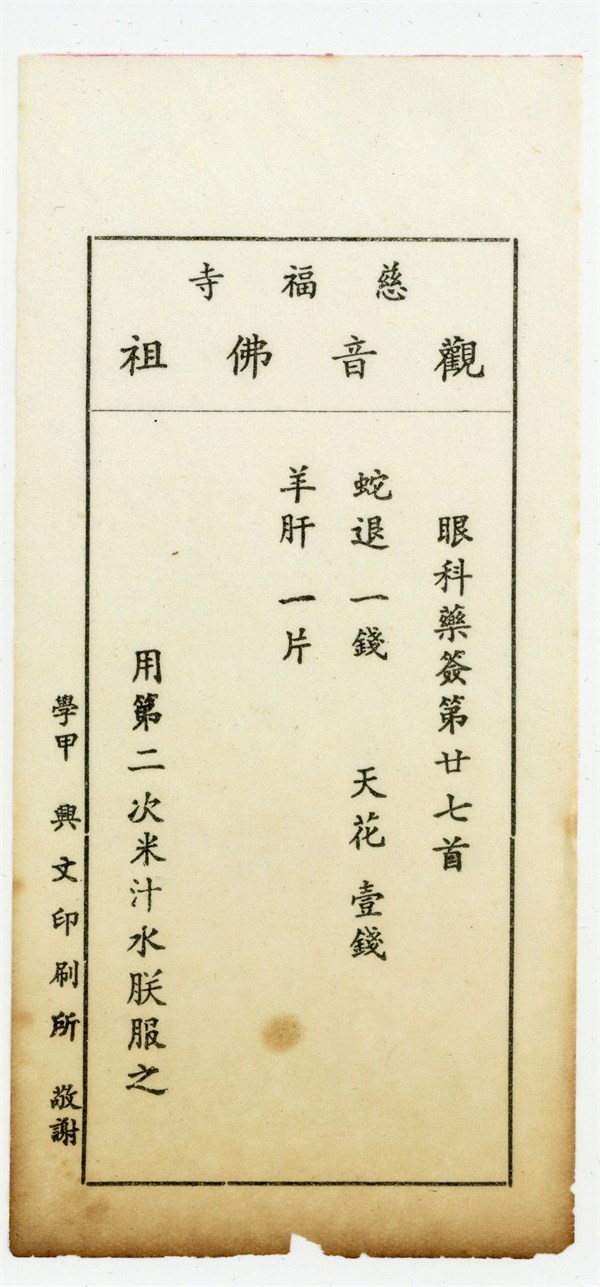 慈福寺
觀音佛祖
眼科藥簽第廿七首
蛇退一錢 天花壹錢
羊肝一片
用第二次米汁水朕服之
學甲 興文印刷所 敬謝